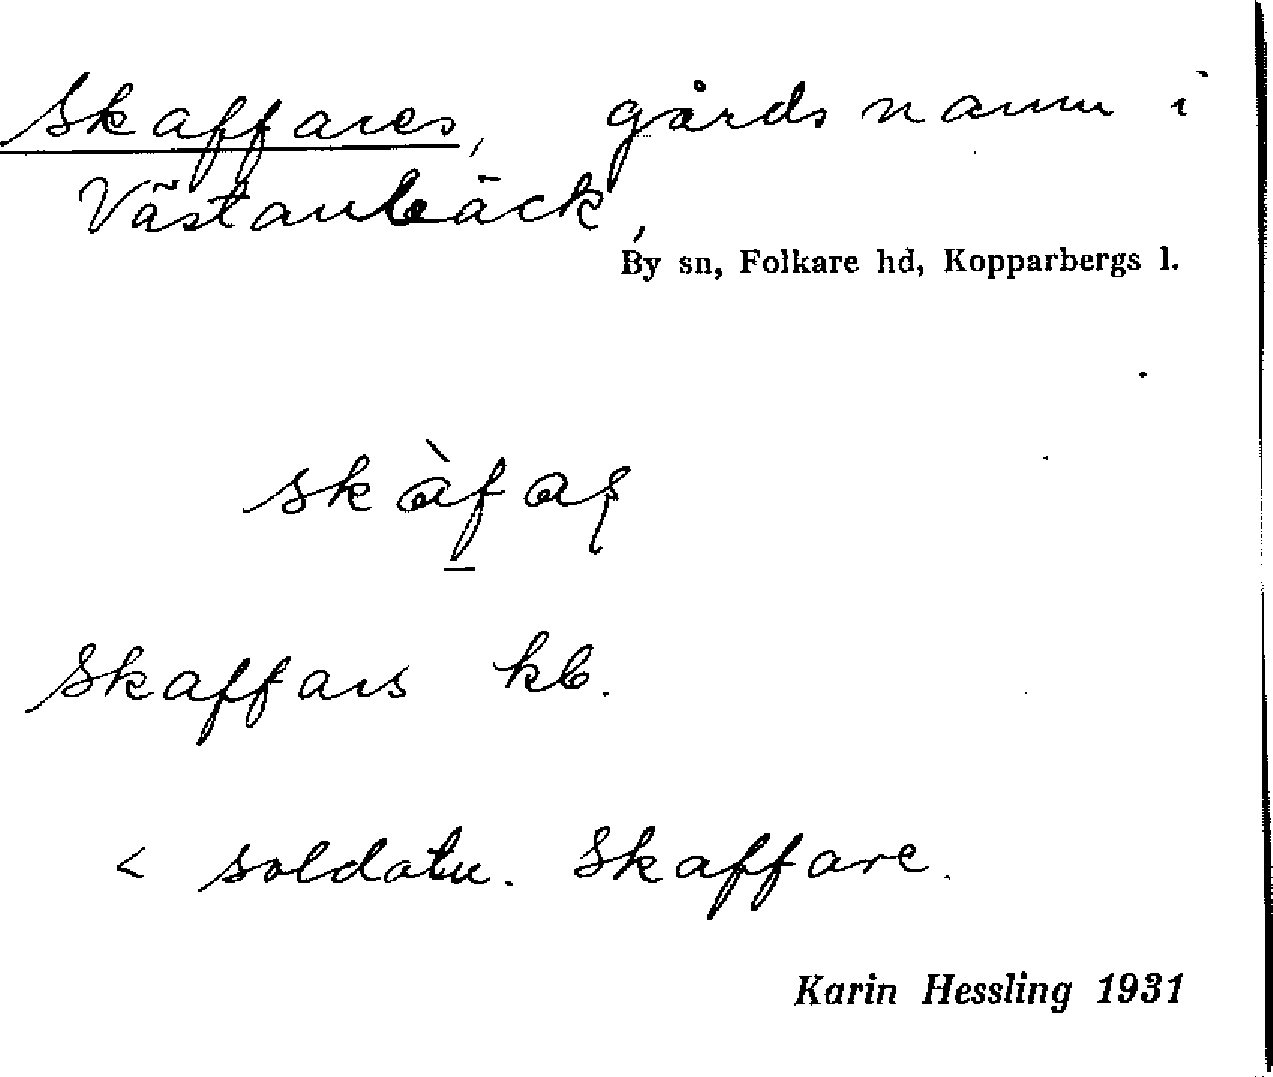 Skaffares, gårdsnamn i
Västanbäck,
By sn, Folkare hd, Kopparbergs l.
skàf̱aş
Skaffars kb.
< soldatn. Skaffare.
Karin Hessling 1931